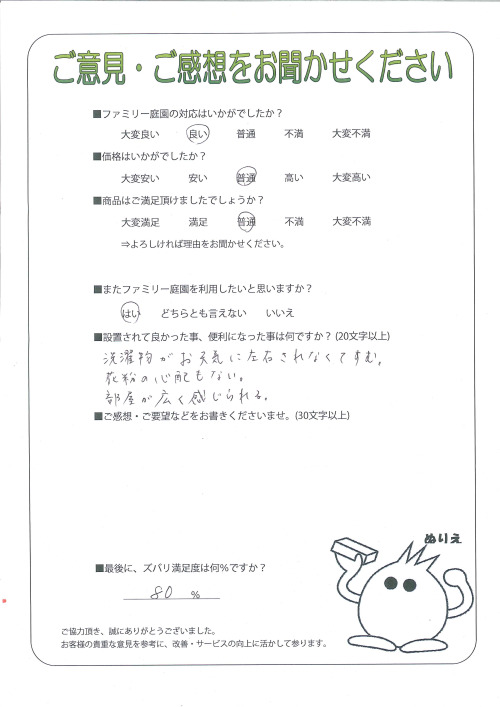 ご意見・ご感想をお聞かせください
■ファミリー庭園の対応はいかがでしたか？
大変良い 良い 普通 不満 大変不満
■価格はいかがでしたか？
大変安い 安い 普通 高い 大変高い
■商品はご満足頂けましたでしょうか？
大変満足 満足 普通 不満 大変不満
⇒よろしければ理由をお聞かせください。
■またファミリー庭園を利用したいと思いますか？
はい どちらとも言えない いいえ
■設置されて良かった事、便利になった事は何ですか？(20文字以上)
洗濯物がお天気に左右されなくてすむ。
花粉の心配もない。
部屋が広く感じられる。
■ご感想・ご要望などをお書きくださいませ。(30文字以上)
ぬりえ
■最後に、ズバリ満足度は何％ですか？
80 ％
ご協力頂き、誠にありがとうございました。
お客様の貴重な意見を参考に、改善・サービスの向上に活かして参ります。